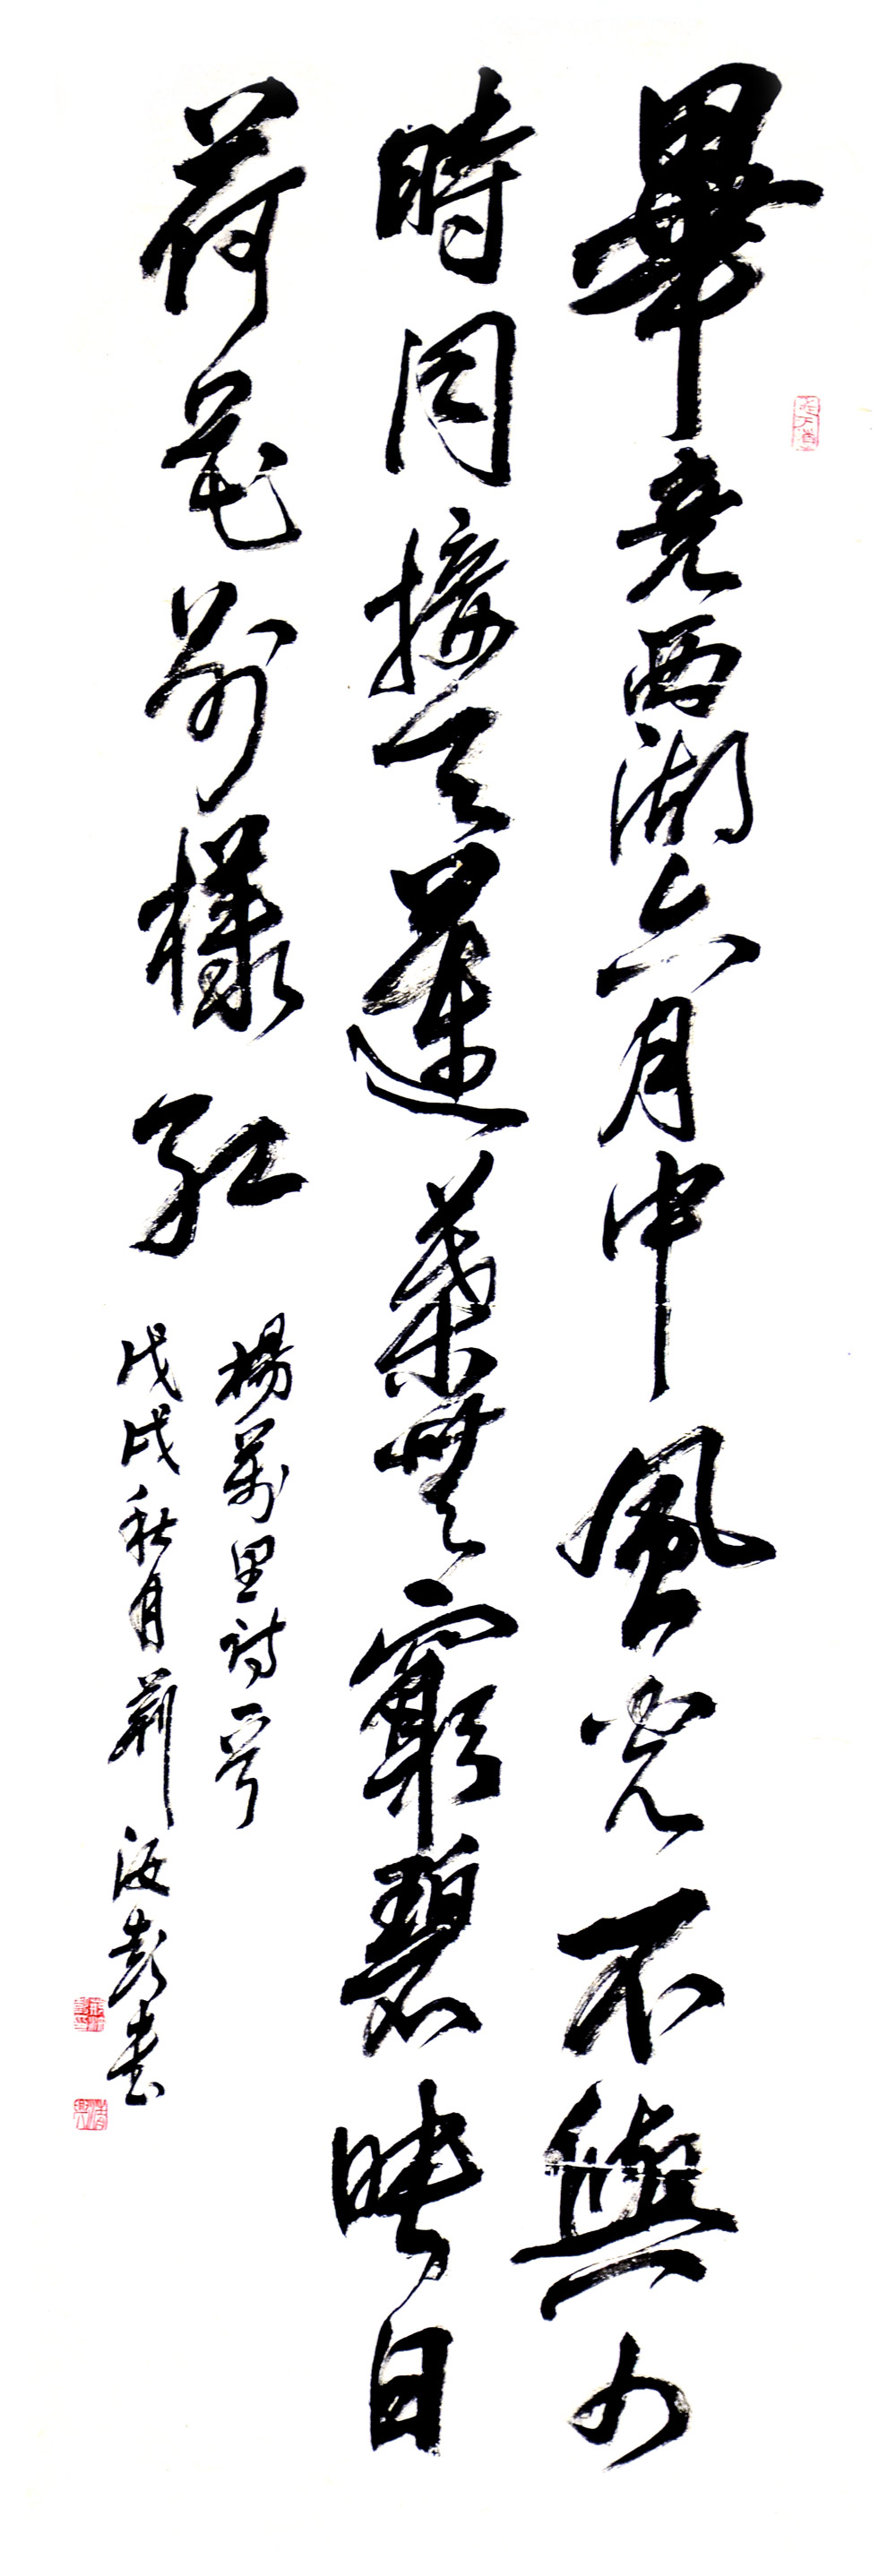 畢竟西湖六月中風光不與四
時同接天蓮葉無窮碧映日
荷花別樣紅
楊萬里詩一首
戊戌秋月荊彭書